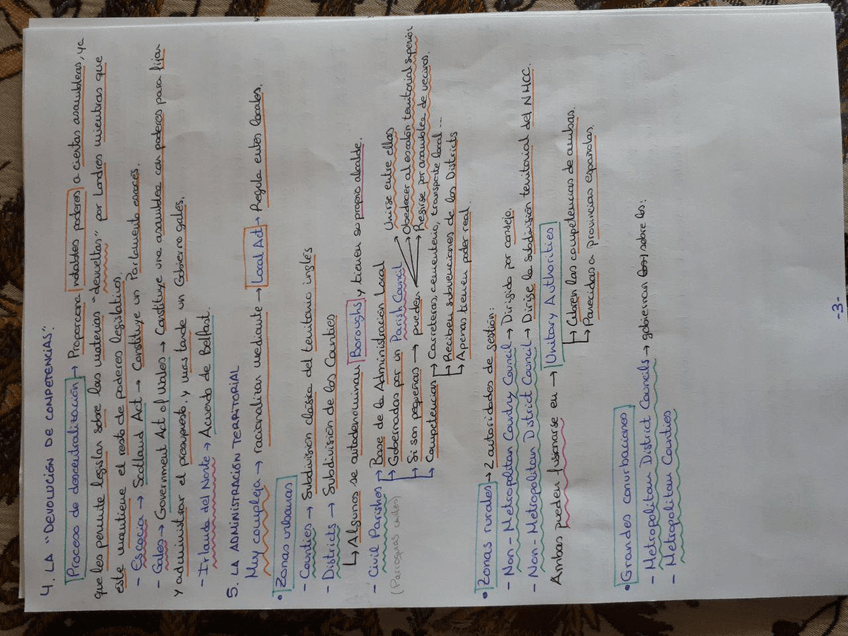 4. LA "DEVOLUCIÓN DE COMPETENCIAS":
Proceso de descentralización → Proporciona notables poderes a ciertas asambleas, ya
que les permite legislar sobre las materias "devueltas" por Londres mientras que
este mantiene el resto de poderes legislativos.
- Escocia → Scotland Act → Constituye un Parlamento escocés.
- Gales → Government Act of Wales → Constituye una asamblea con poderes para fijar
y administrar el presupuesto, y más tarde un Gobierno galés.
- Irlanda del Norte → Acuerdo de Belfast.
5. LA ADMINISTRACIÓN TERRITORIAL
Muy compleja → racionalizar mediante → Local Act → Regula entes locales.
• Zonas urbanas
- Counties → Subdivisión clásica del territorio inglés
- Districts → Subdivisión de los Counties
↳ Algunos se autodenominan Boroughs y tienen su propio alcalde.
- Civil Parishes → Base de la Administración Local
(Parroquias civiles) ↳ Gobernados por un Parish Council
↳ Si son pequeñas → pueden → Unirse entre ellas
→ Obedecer al escalón territorial superior
→ Regirse por asamblea de vecinos.
↳ Competencias → Carreteras, cementerio, transporte local...
↳ Reciben subvenciones de los Districts
↳ Apenas tienen poder real.
• Zonas rurales → 2 autoridades de gestión:
- Non-Metropolitan County Council → Dirigido por consejo.
- Non-Metropolitan District Council → Dirige la subdivisión territorial del NHCC.
Ambas pueden fusionarse en → Unitary Authorities
↳ Cubren las competencias de ambas.
↳ Parecidas a provincias españolas.
• Grandes conurbaciones
- Metropolitan District Councils → gobiernan sobre los:
- Metropolitan Counties
-3-